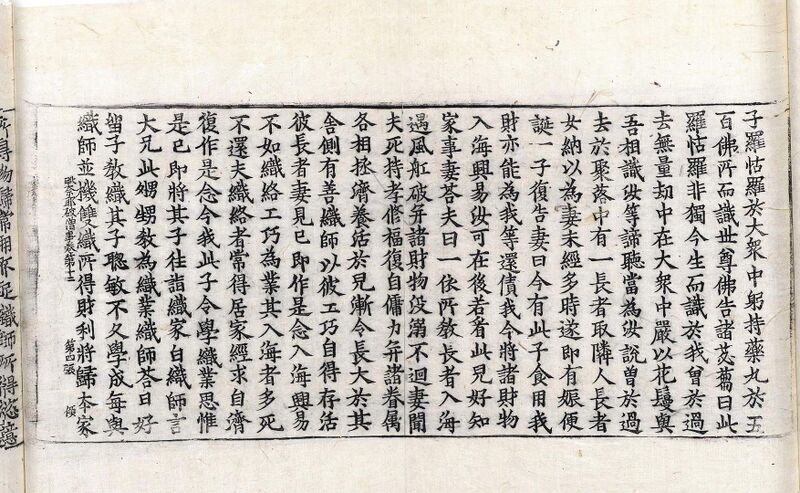 子羅怙羅於大衆中躬持藥丸於五
百佛所而識世尊佛告諸苾蒭曰此
羅怙羅非獨今生而識於我曾於過
去無量劫中在大衆中嚴以花鬘與
吾相識汝等諦聽當為汝說曽於過
去於聚落中有一長者取隣人長者
女納以為妻未經多時遂即有娠便
誕一子復告妻曰今有此子食用我
財亦能為我等還債我今將諸財物
入海興易汝可在後若看此兒好知
家事妻荅夫曰一依所教長者入海
遇風舡破并諸財物没溺不迴妻聞
夫死持孝修福復自傭力并諸眷属
各相拯濟養活於兒漸令長大於其
舍側有善織師以彼工巧自得存活
彼長者妻見已即作是念入海興易
不如織絡工巧為業其入海者多死
不還夫織絡者常得居家經求自濟
復作是念今我此子令學織業思惟
是已即將其子往詣織家白織師言
大兄此甥甥教為織業織師荅曰好
留子教織其子聦敏不久學成每與
織師並機雙織所得財利將歸本家
毗奈耶破僧事卷第十二 第四張
所得物歸常用不足織師所得